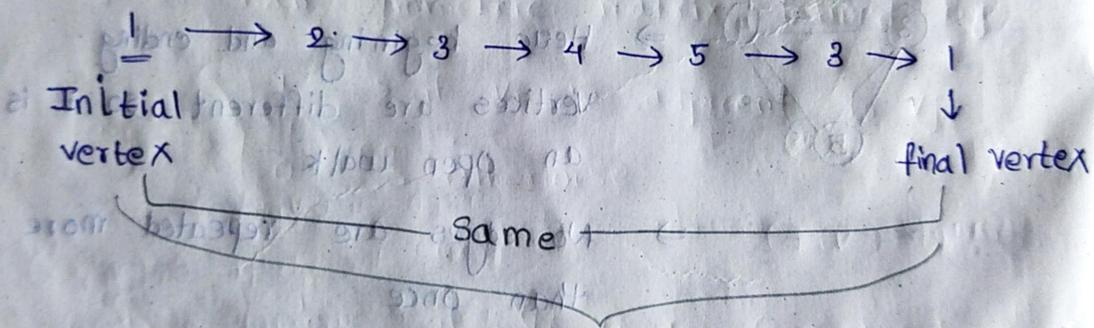 1 → 2 → 3 → 4 → 5 → 3 → 1
Initial
vertex
↓
final vertex
Same